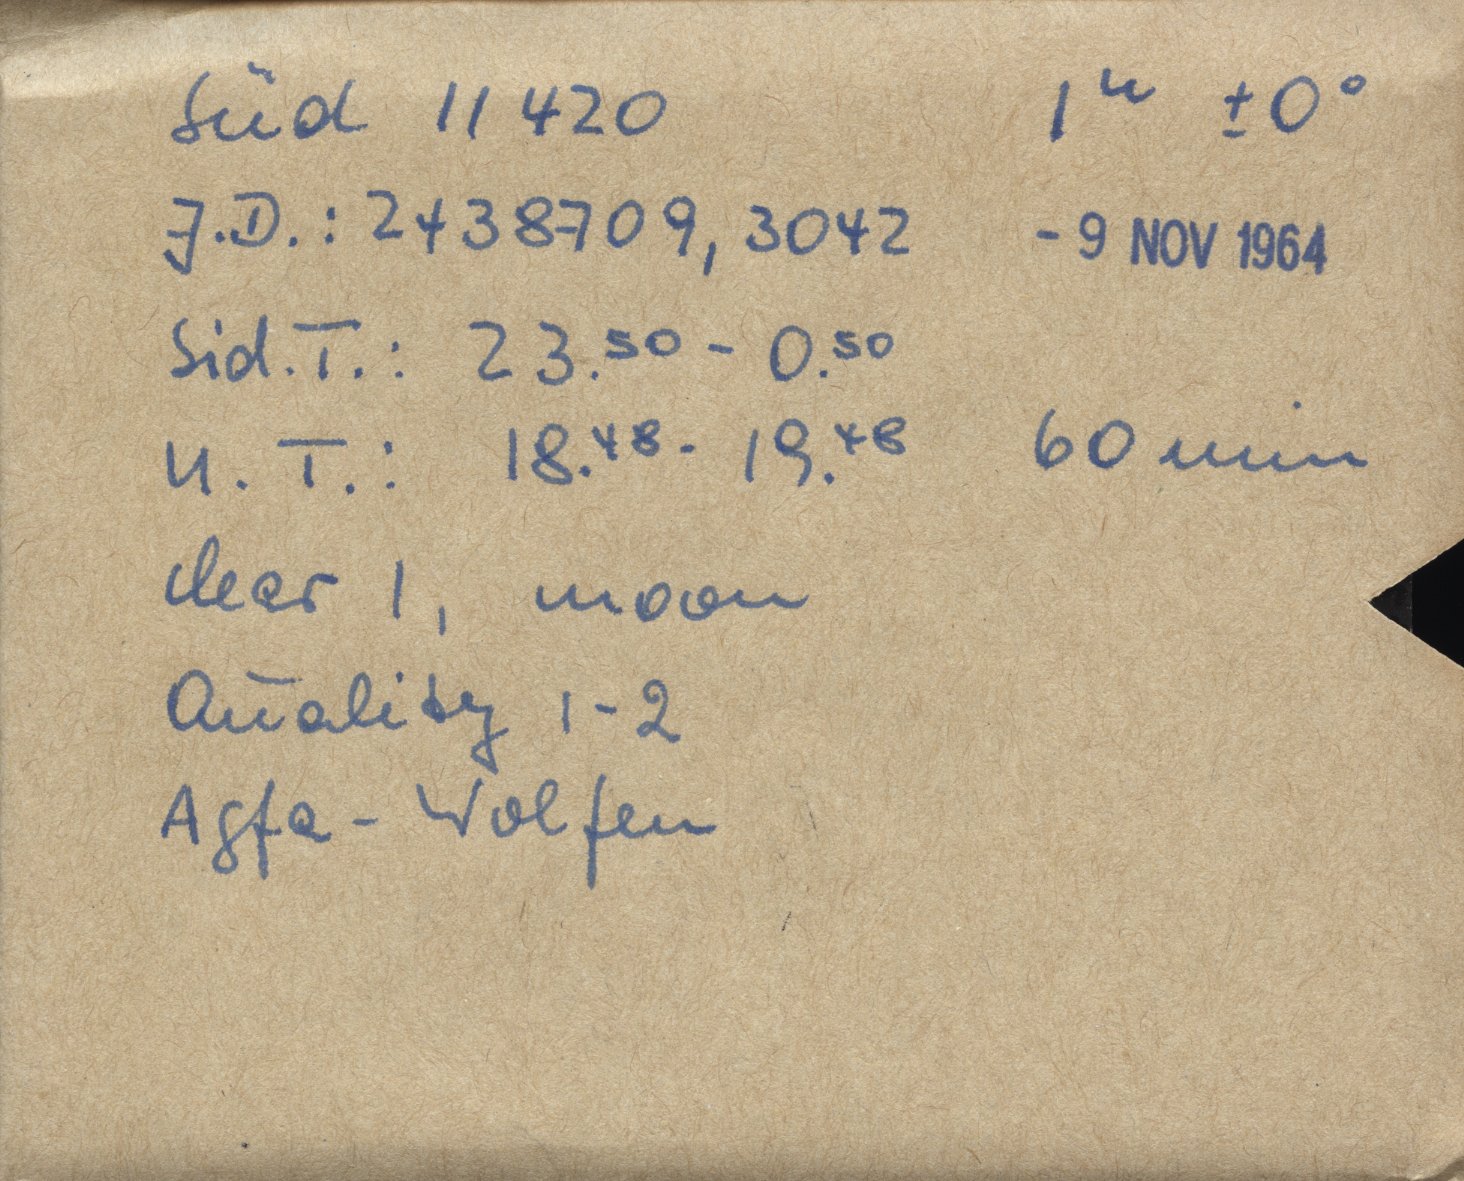 Süd 11420 1ʰ ±0°
J.D.: 2438709,3042 - 9 NOV 1964
Sid.T.: 23.⁵⁰ - 0.⁵⁰
U.T.: 18.⁴⁸ - 19.⁴⁸ 60 min
clear 1, moon
Quality 1-2
Agfa - Wolfen